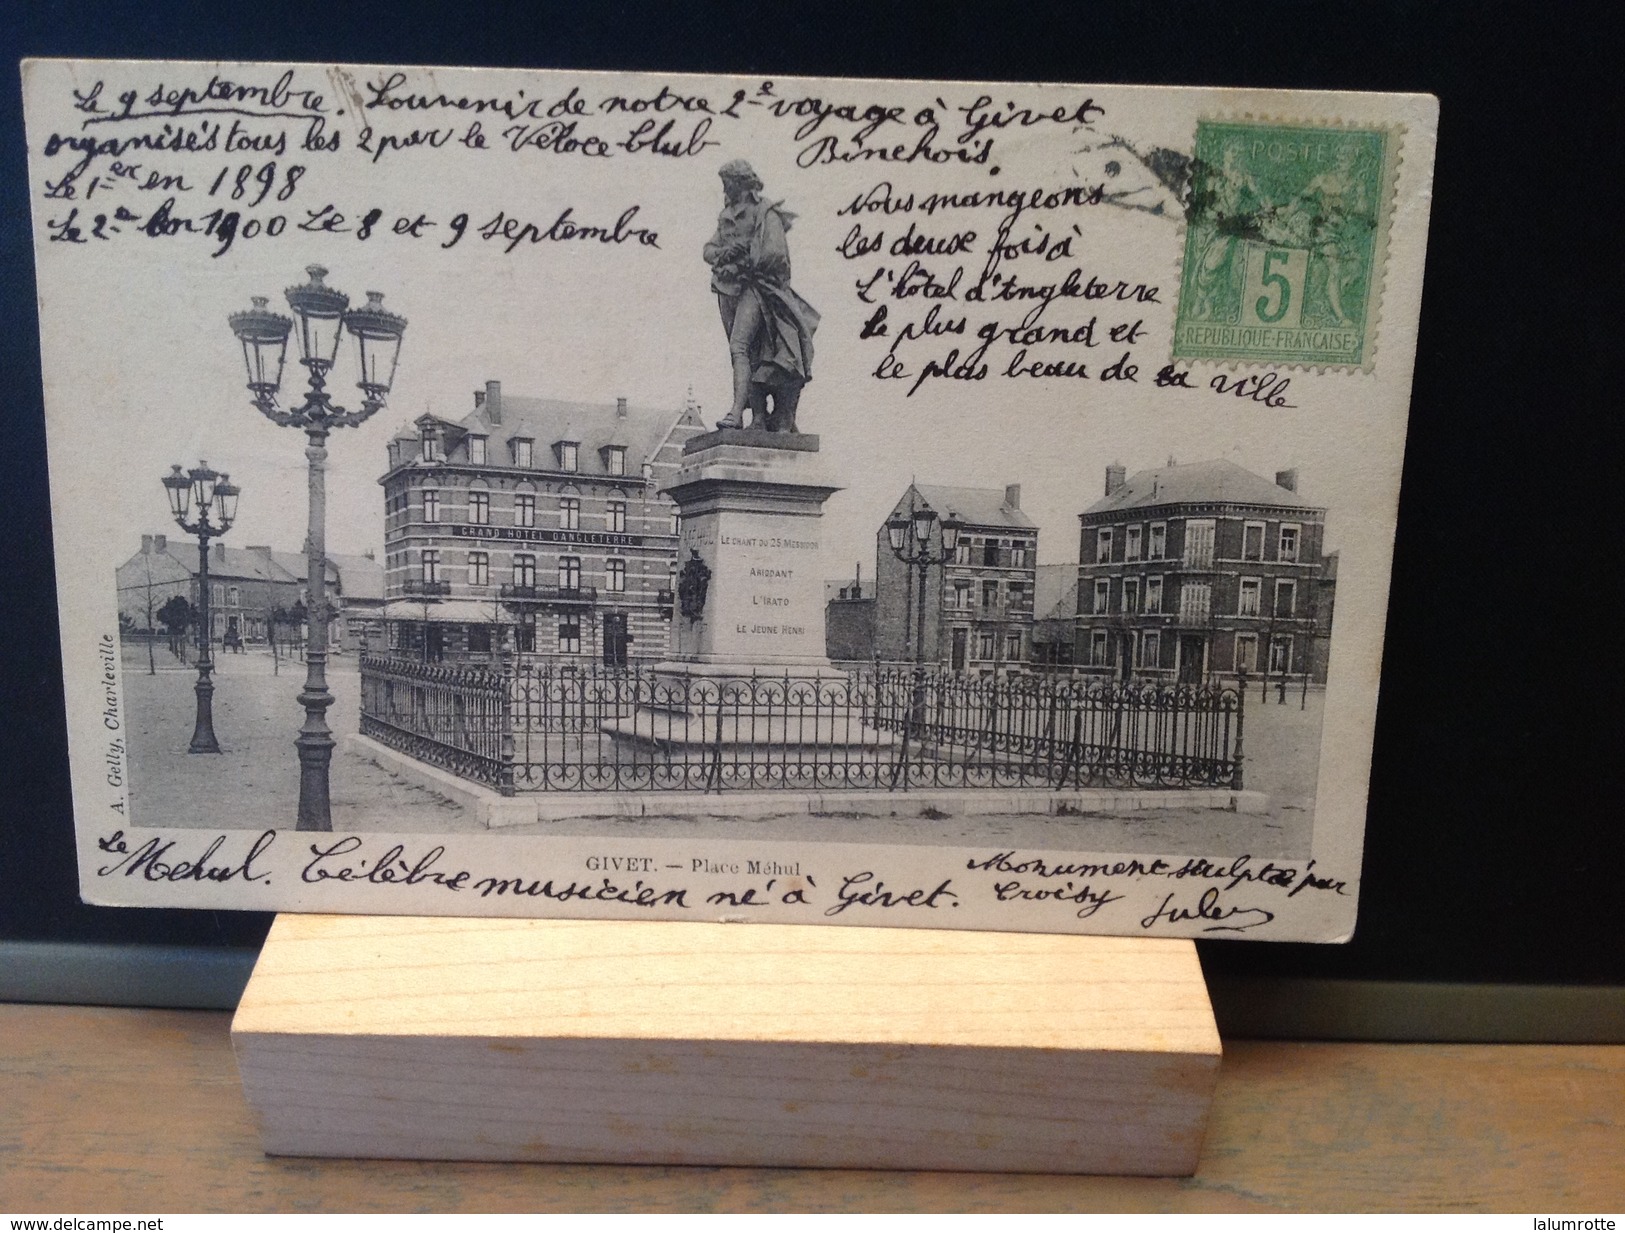 Le 9 septembre. Souvenir de notre 2e voyage à Givet
organisés tous les 2 par le Véloce-Club Binchois.
Le 1er en 1898
Le 2e en 1900 Le 8 et 9 septembre
Nous mangeons
les deux fois à
L'hôtel d'Angleterre
le plus grand et
le plus beau de la ville
POSTES
5
REPUBLIQUE FRANÇAISE
GRAND HOTEL DANGLETERRE
MÉHUL
LE CHANT DU 25 MESSIDOR
ARIODANT
L'IRATO
LE JEUNE HENRI
A. Gelly, Charleville
GIVET. — Place Méhul
Le Mehul. Célèbre musicien né à Givet.
Monument sculpté par
Croisy
Jules
www.delcampe.net
lalumrotte